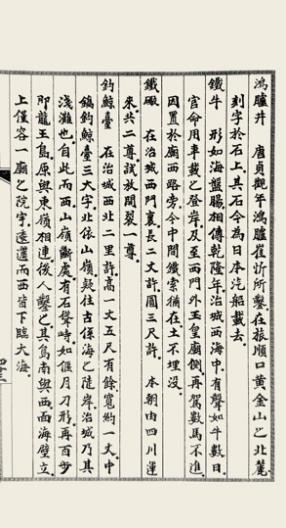 鴻臚井　唐貞觀年鴻臚崔忻所鑿在旅順口黃金山之北麓
刻字於石上其石今為日本汽船載去
鐵牛　形如海盤臈相傳乾隆年治城西海中有聲如牛數日
官命用車載之登岸及至西門外玉皇廟側再駕數馬不進
因置於廟西路旁今中間鐵索猶在土不埋沒
鐵礮　在治城西門裏長二丈許圍三尺許　本朝由四川運
來共二尊試放開裂一尊
釣鯨臺　在治城西北二里許高一丈五尺有餘寬約一丈中
鐫釣鯨臺三大字北依山嶺疑往古係海之陸岸治城乃其
淺灘也自此而西山嶺斷處有石聳峙如偃月刀形再百步
即龍王島原與東嶺相連後人鑿之其島南與西面海壁立
上僅容一廟之院宇遠邇而西皆下臨大海